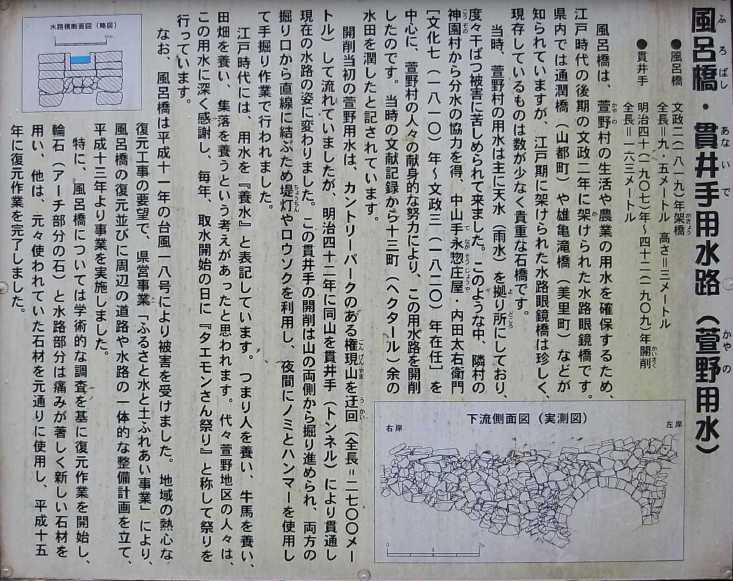 風呂橋・貫井手用水路（萱野用水）
ふろばし
あないで
かやの
●風呂橋　文政二（一八一九）年架橋
かきょう
全長＝九・五メートル　高さ＝三メートル
●貫井手　明治四十（一九〇七）年～四十二（一九〇九）年開削
かいさく
全長＝一六三メートル
風呂橋は、萱野村の生活や農業の用水を確保するため、
かや
江戸時代の後期の文政二年に架けられた水路眼鏡橋です。
か
県内では通潤橋（山都町）や雄亀滝橋（美里町）などが
知られていますが、江戸期に架けられた水路眼鏡橋は珍しく、
現存しているものは数が少なく貴重な石橋です。
当時、萱野村の用水は主に天水（雨水）を拠り所にしており、
よ
どころ
度々干ばつ被害に苦しめられて来ました。このような中、隣村の
神園村から分水の協力を得、中山手永惣庄屋・内田太右衛門
こうぞの
てながそうじょうや
〔文化七（一八一〇）年～文政三（一八二〇）年在任〕を
中心に、萱野村の人々の献身的な努力により、この用水路を開削
したのです。当時の文献記録から十三町（ヘクタール）余の
水田を潤したと記されています。
開削当初の萱野用水は、カントリーパークのある権現山を迂回（全長＝二七〇〇メー
ごんげんやま
うかい
トル）して流れていましたが、明治四十二年に同山を貫井手（トンネル）により貫通し
現在の水路の姿に変わりました。この貫井手の開削は山の両側から掘り進められ、両方の
掘り口から直線に結ぶため堤灯やロウソクを利用し、夜間にノミとハンマーを使用し
ちょうちん
て手掘り作業で行われました。
江戸時代には、用水を『養水』と表記しています。つまり人を養い、牛馬を養い、
田畑を養い、集落を養うという考えがあったと思われます。代々萱野地区の人々は、
この用水に深く感謝し、毎年、取水開始の日に『タエモンさん祭り』と称して祭りを
行っています。
なお、風呂橋は平成十一年の台風一八号により被害を受けました。地域の熱心な
復元工事の要望で、県営事業「ふるさと水と土ふれあい事業」により、
風呂橋の復元並びに周辺の道路や水路の一体的な整備計画を立て、
平成十三年より事業を実施しました。
特に、風呂橋については学術的な調査を基に復元作業を開始し、
輪石（アーチ部分の石）と水路部分は痛みが著しく新しい石材を
用い、他は、元々使われていた石材を元通りに使用し、平成十五
年に復元作業を完了しました。
水路横断面図（略図）
下流側面図（実測図）
右岸
左岸